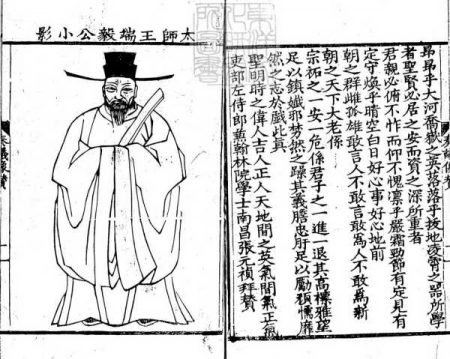 昂昂乎大河喬嶽之英落落乎拔地凌霄之器所學
者聖賢必居之安而資之深所重者
君親必俯不怍而仰不愧凜乎嚴霜勁節有定見有
定守煥乎晴空白日好心事好心地前
朝之群雌孤雄敢言人不敢言敢為人不敢為新
朝之天下大老係
宗祏之一安一危係君子之一進一退其高標雅望
足以鎮然之躁其義膽忠肝足以勵頹懦靡
然之志於戲此真
聖明時之偉人吉人正人天地間之英氣間氣正氣
吏部左侍郎前翰林院學士南昌張元禎拜贊
太師王端毅公小影